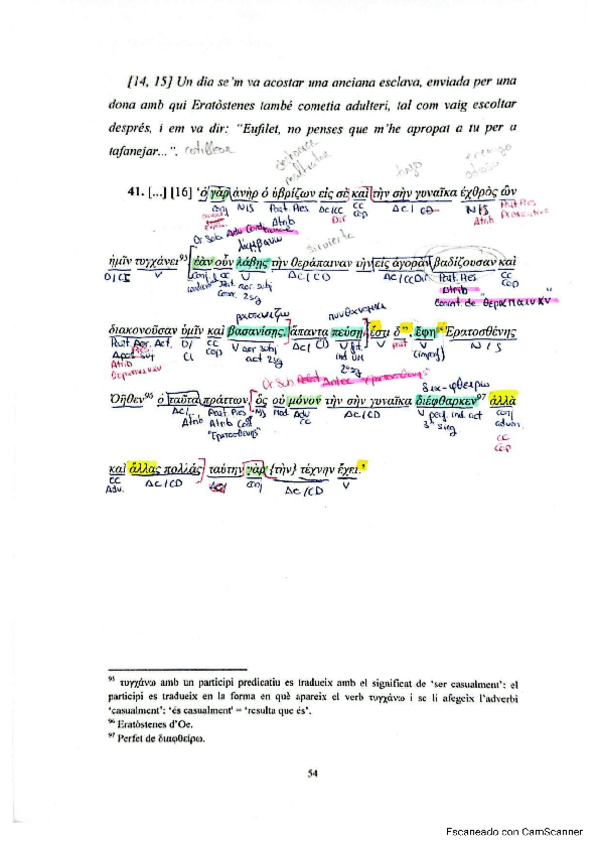 [14, 15] Un dia se'm va acostar una anciana esclava, enviada per una
dona amb qui Eratòstenes també cometia adulteri, tal com vaig escoltar
després, i em va dir: "Eufilet, no penses que m'he apropat a tu per a
tafanejar...".
41. [...] [16] 'ὁ γὰρ ἀνὴρ ὁ ὑβρίζων εἰς σὲ καὶ τὴν σὴν γυναῖκα ἐχθρὸς ὢν
conj N/S Part. Pres Ac/CC cc Ac/ N/S
Atrib Dir cop Atrib
Or Sub
λαμβανω
ἡμῖν τυγχάνει⁹⁵ ἐὰν οὖν λάβῃς τὴν θεράπαιναν τὴν εἰς ἀγορὰν βαδίζουσαν καὶ
D/CI V V aor subj Ac/CD Ac/CCDir Part. Pres cc
2sg Atrib cop
βασανιζω πυνθανομαι
διακονοῦσαν ὑμῖν καὶ βασανίσῃς, ἅπαντα πεύσῃ. ἔστι δ', ἔφη 'Ερατοσθένης
D/ cc V aor subj Ac/CD V fut. V V N/S
CI cop act 2sg (imperf)
Or Sub δια-φθειρω
Ὀῆθεν⁹⁶ ὁ ταῦτα πράττων ὃς οὐ μόνον τὴν σὴν γυναῖκα διέφθαρκεν⁹⁷ ἀλλὰ
Ac/ Part Pres N/S Adv Ac/CD V perf. ind. act conj
Atrib 3ª sing advers.
cc
cop
καὶ ἄλλας πολλάς ταύτην γὰρ {τὴν} τέχνην ἔχει.'
cc Ac/CD conj Ac/CD V
Adv.
⁹⁵ τυγχάνω amb un participi predicatiu es tradueix amb el significat de 'ser casualment': el
participi es tradueix en la forma en què apareix el verb τυγχάνω i se li afegeix l'adverbi
'casualment': 'és casualment' = 'resulta que és'.
⁹⁶ Eratòstenes d'Oe.
⁹⁷ Perfet de διαφθείρω.
54
Escaneado con CamScanner